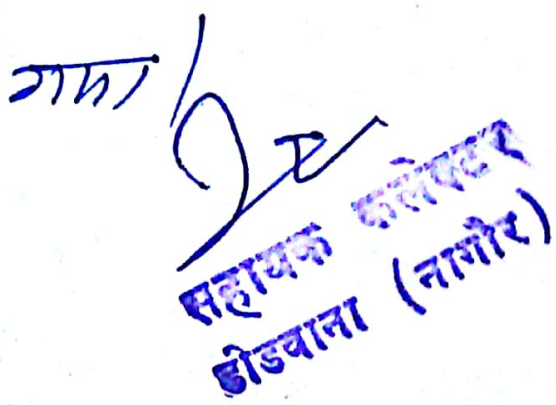 गया।
सहायक कलेक्टर
डीडवाना (नागौर)